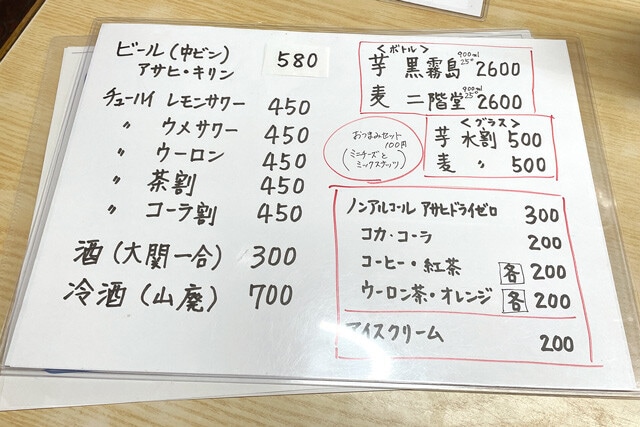 ビール(中ビン) 580
アサヒ・キリン
チューハイ レモンサワー 450
〃 ウメサワー 450
〃 ウーロン 450
〃 茶割 450
〃 コーラ割 450
酒(大関一合) 300
冷酒(山廃) 700
<ボトル>
芋 黒霧島 900ml 25° 2600
麦 二階堂 900ml 25° 2600
<グラス>
芋 水割 500
麦 〃 500
おつまみセット
100円
(ミニチーズと
ミックスナッツ)
ノンアルコール アサヒドライゼロ 300
コカ・コーラ 200
コーヒー・紅茶 各 200
ウーロン茶・オレンジ 各 200
アイスクリーム 200